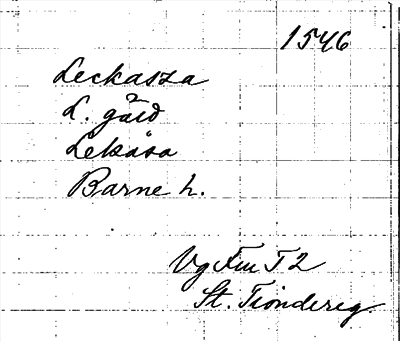 1546
Leckasza
L. gård
Lekåsa
Barne h.
Vg Fru T 2
St. Tiondereg.